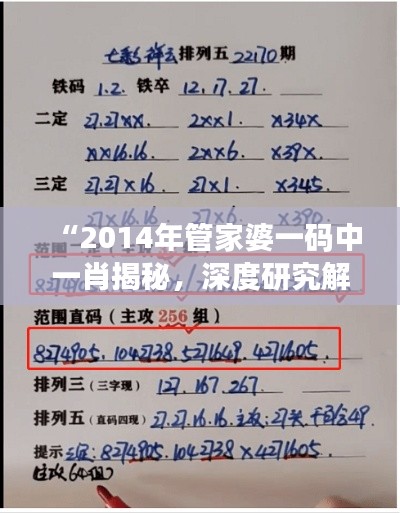 七彩祥云排列五22170期
铁码 1.2. 铁卒 12,17,27.
二定 27.27xx. 2xx1. x34x
xx16.16. 2xx6. x39x.
三定 27.27x16. 27x1. x345.
“2014年管家婆一码中
一肖揭秘，深度研究解
范围直码（主攻256组）
8274905.1042738.5271649.4271605.
排列三（三字现）127.167.267.
排列五（直码四现）27.27.16.16.
提示 8274905.1042738x4271605.